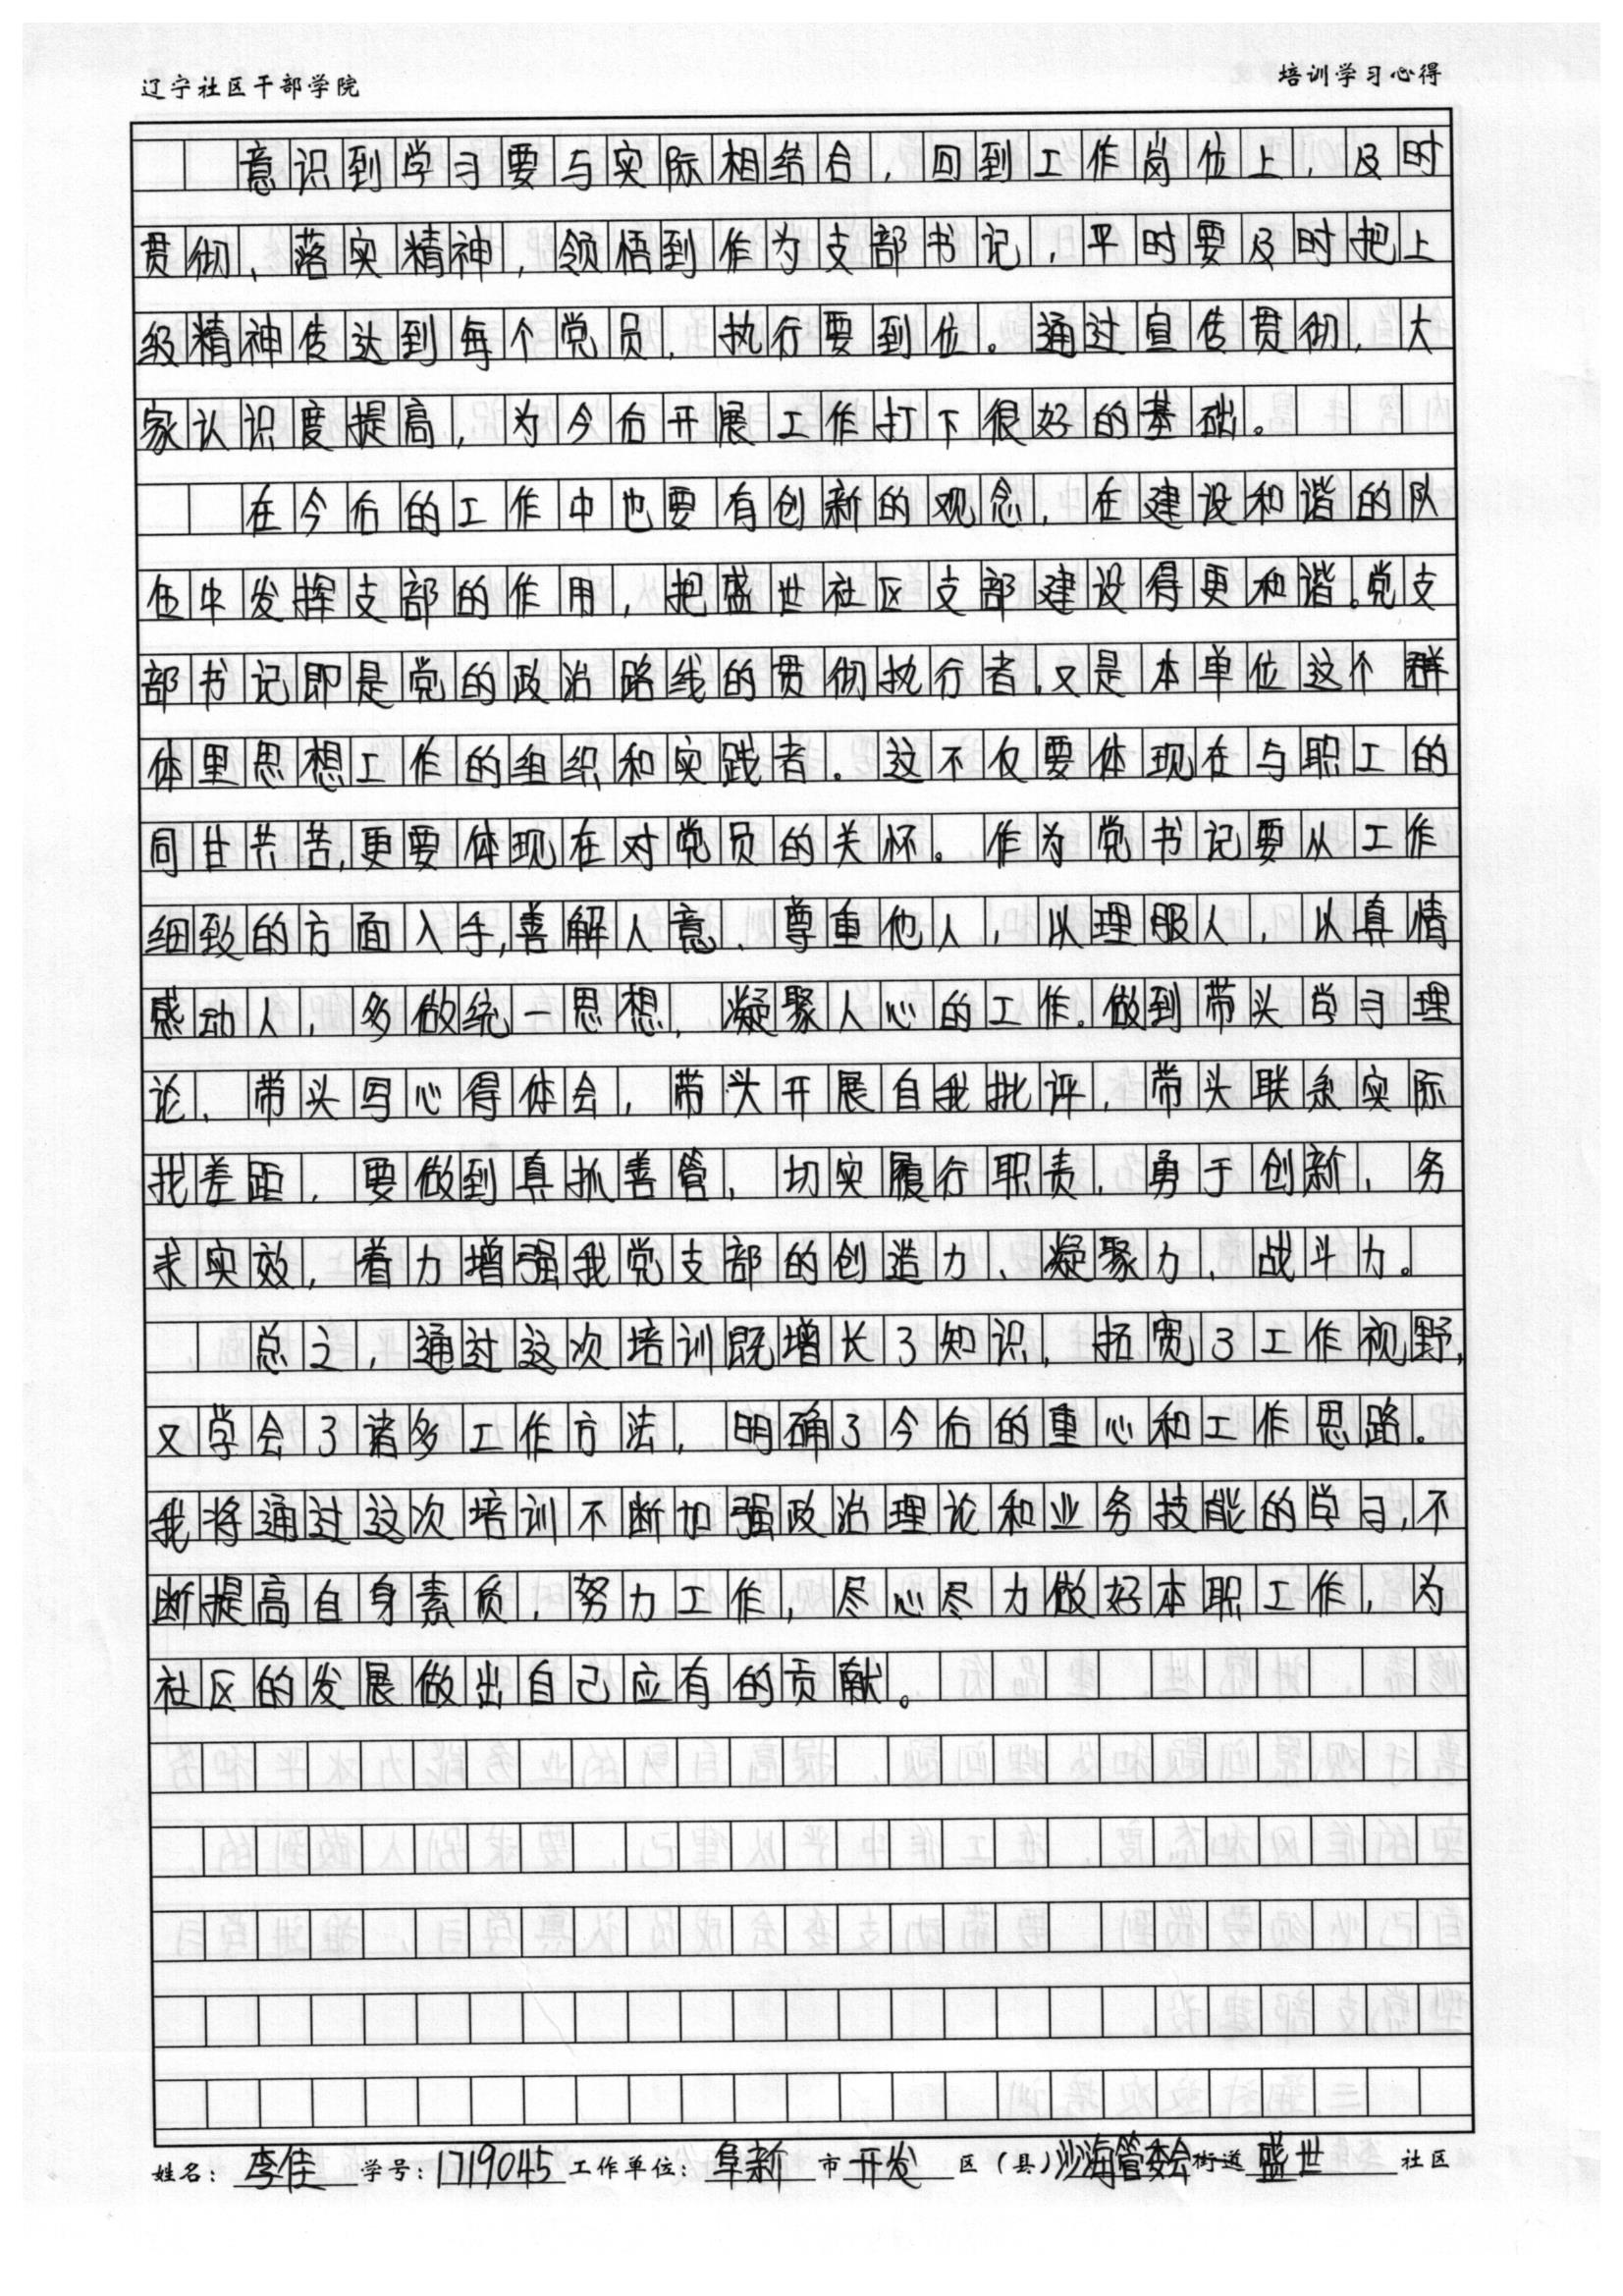 辽宁社区干部学院 培训学习心得
意识到学习要与实际相结合，回到工作岗位上，及时
贯彻、落实精神，领悟到作为支部书记，平时要及时把上
级精神传达到每个党员，执行要到位。通过宣传贯彻，大
家认识度提高，为今后开展工作打下很好的基础。
在今后的工作中也要有创新的观念，在建设和谐的队
伍中发挥支部的作用，把盛世社区支部建设得更和谐。党支
部书记即是党的政治路线的贯彻执行者，又是本单位这个群
体里思想工作的组织和实践者。这不仅要体现在与职工的
同甘共苦，更要体现在对党员的关怀。作为党书记要从工作
细致的方面入手，善解人意、尊重他人，以理服人，以真情
感动人，多做统一思想，凝聚人心的工作。做到带头学习理
论、带头写心得体会，带头开展自我批评，带头联系实际
找差距，要做到真抓善管，切实履行职责，勇于创新，务
求实效，着力增强我党支部的创造力、凝聚力、战斗力。
总之，通过这次培训既增长了知识，拓宽了工作视野，
又学会了诸多工作方法，明确了今后的重心和工作思路。
我将通过这次培训不断加强政治理论和业务技能的学习，不
断提高自身素质，努力工作，尽心尽力做好本职工作，为
社区的发展做出自己应有的贡献。
姓名：李佳 学号：1719045 工作单位：阜新 市 开发 区（县）沙海管委会街道 盛世 社区